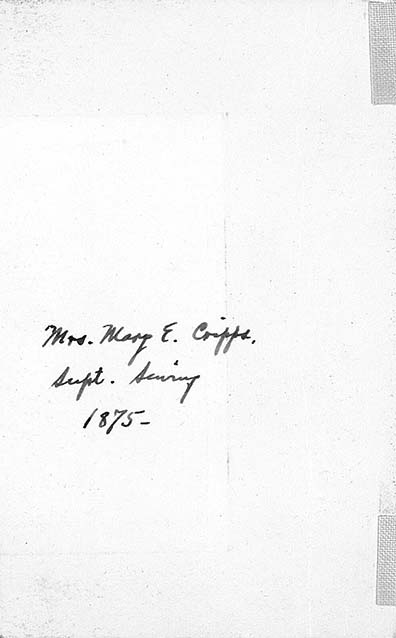 Mrs. Mary E. Cripps.
Supt. Sewing
1875-